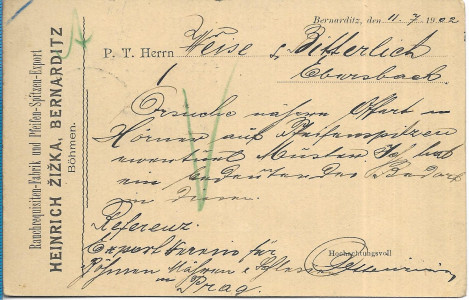 Rauchrequisiten-Fabrik und Pfeifen-Spitzen-Export
HEINRICH ŽIŽKA, BERNARDITZ
Böhmen.
Bernarditz, den 11-7 1902
P. T. Herrn Weise & Bitterlich
Ebersbach
Ersuche nähere Offert in
Hörner auf Pfeifenspitzen
eventuell Muster Ich hab
ein bedeutendes Bedarf
in
Referenz.
Export Verein für
Böhmen Mähren & Schlesien
in Prag.
Hochachtungsvoll